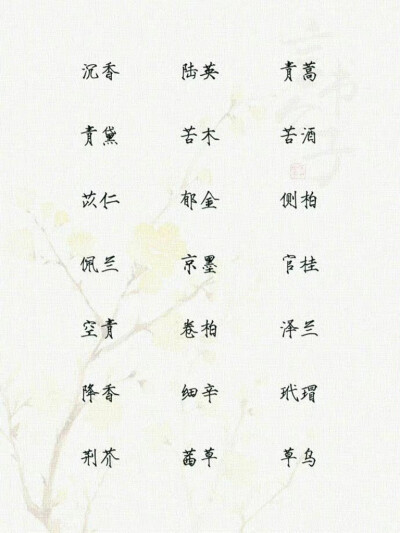 沉香 陆英 青蒿
青黛 苦木 苦酒
苡仁 郁金 侧柏
佩兰 京墨 官桂
空青 卷柏 泽兰
降香 细辛 玳瑁
荆芥 茜草 草乌